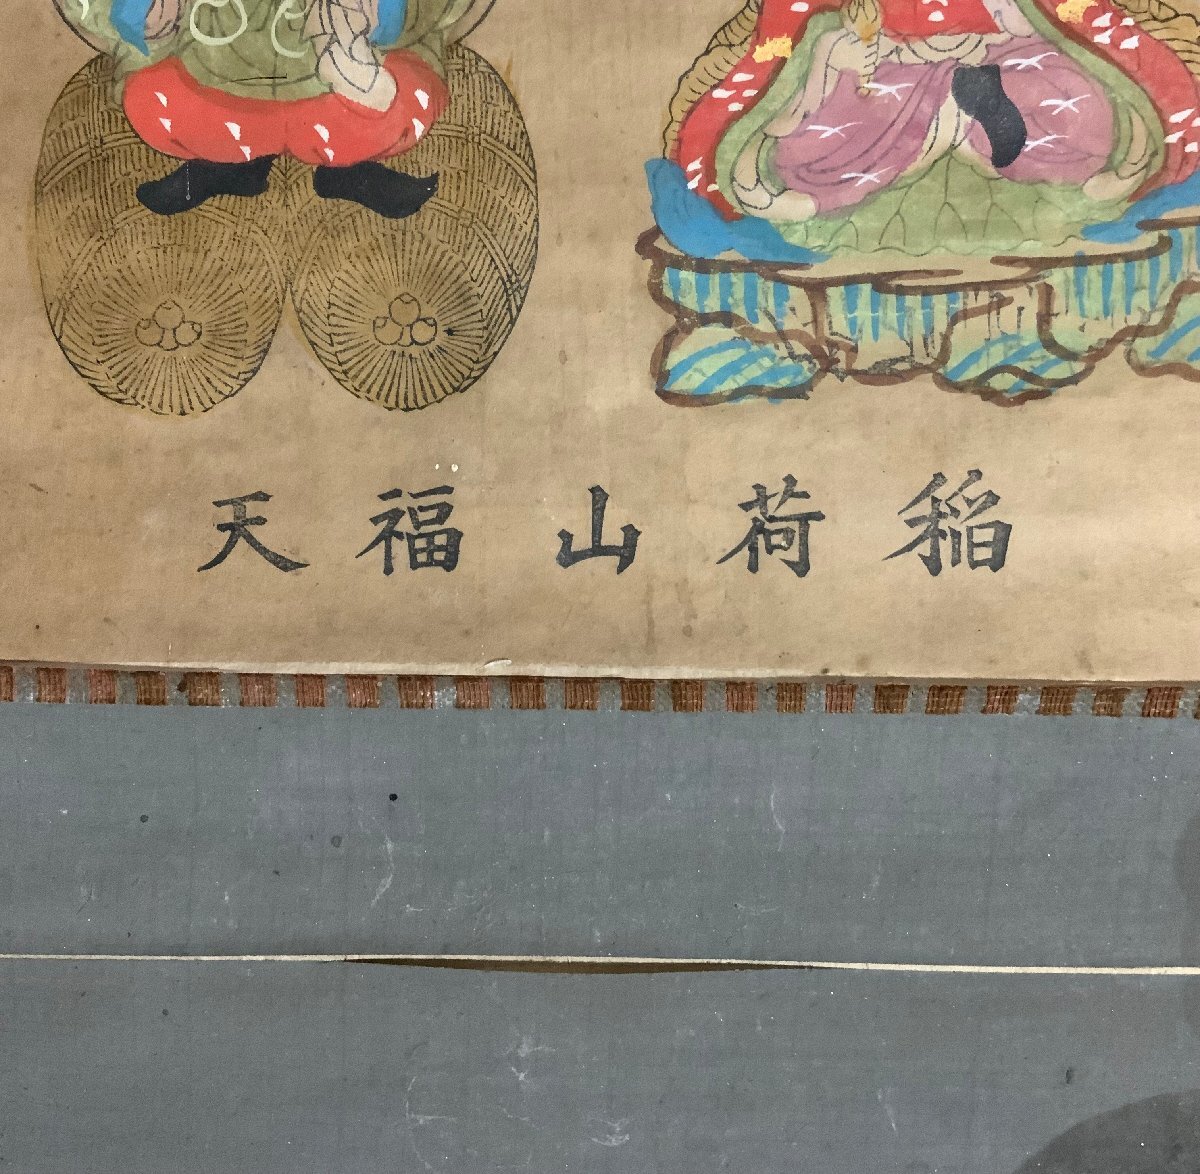 稲荷山福天